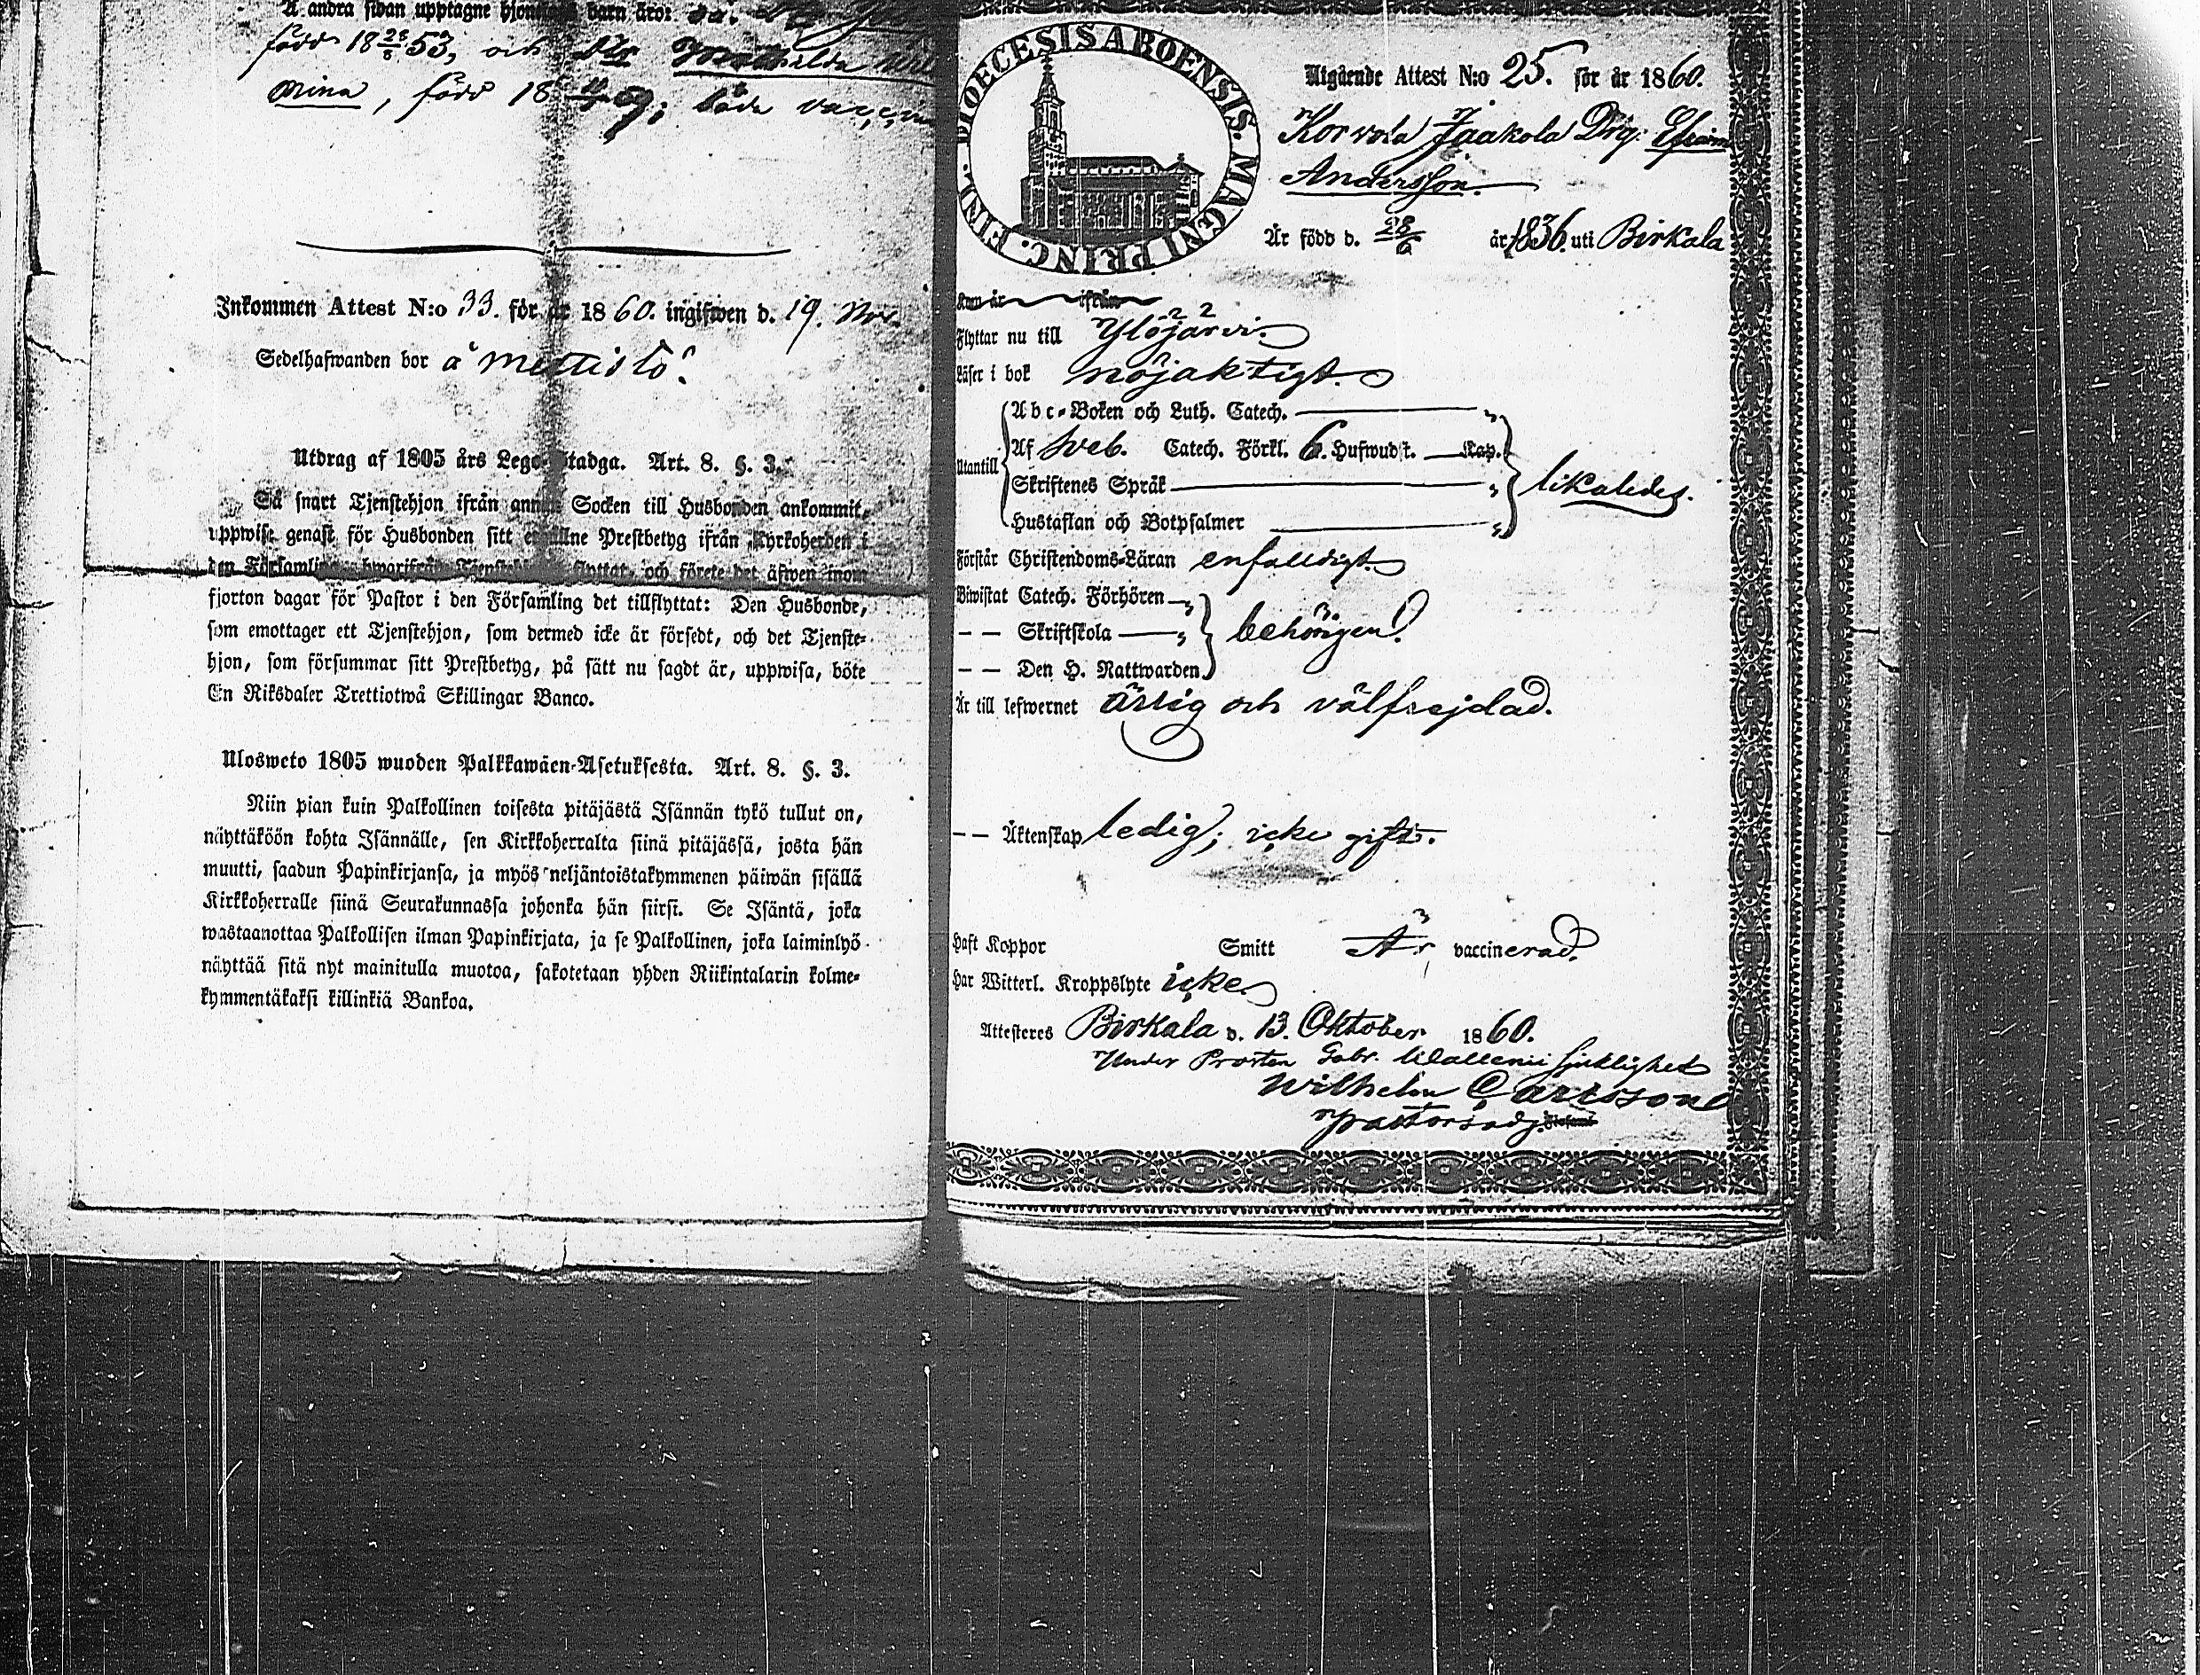 Å andra sidan upptagne barn äro:
född 18 28/8 53, och Dtr
mina, född 18 59; båda
Inkommen Attest N:o 33. för år 1860. ingifwen d. 19. Nov.
Sedelhafwanden bor å Mettistö.
Utdrag af 1805 års Lego-Stadga. Art. 8. §. 3.
Så snart Tjenstehjon ifrån annan Socken till Husbonden ankommit,
uppwise genast för Husbonden sitt erhållne Prestbetyg ifrån Kyrkoherden i
den Församling, hwarifrån Tjenstehjonet flyttat, och förete det äfwen inom
fjorton dagar för Pastor i den Församling det tillflyttat: Den Husbonde,
som emottager ett Tjenstehjon, som dermed icke är försedt, och det Tjenste-
hjon, som försummar sitt Prestbetyg, på sätt nu sagdt är, uppwisa, böte
En Riksdaler Trettiotwå Skillingar Banco.
Ulosweto 1805 wuoden Palkkawäen-Asetuksesta. Art. 8. §. 3.
Niin pian kuin Palkollinen toisesta pitäjästä Isännän tykö tullut on,
näyttäköön kohta Isännälle, sen Kirkkoherralta siinä pitäjässä, josta hän
muutti, saadun Papinkirjansa, ja myös neljäntoistakymmenen päiwän sisällä
Kirkkoherralle siinä Seurakunnassa johonka hän siirsi. Se Isäntä, joka
wastaanottaa Palkollisen ilman Papinkirjata, ja se Palkollinen, joka laiminlyö
näyttää sitä nyt mainitulla muotoa, sakotetaan yhden Riikintalarin kolme-
kymmentäkaksi killinkiä Bankoa.
DIOECESIS ABOENSIS. MAGNI PRINC. FINL.
Utgående Attest N:o 25. för år 1860.
Korvola Jaakola Drg: Efraim
Andersson.
Är född d. 28/6 år 1836. uti Birkala
Kom år ifrån
Flyttar nu till Ylöjärvi.
Läser i bok nöjaktigt.
Utantill
Abc-Boken och Luth. Catech. "
Af Sveb. Catech. Förkl. 6. Hufwudst. Kap.
Skriftenes Språk "
Hustaflan och Botpsalmer "
likaledes.
Förstår Christendoms-Läran enfaldigt.
Biwistat Catech. Förhören "
— — Skriftskola "
— — Den H. Nattwarden
behörigen.
Är till lefwernet ärlig och välfrejdad.
— — Äktenskap ledig; icke gift.
Haft Koppor Smitt Är vaccinerad.
Har Witterl. Kroppslyte icke
Attesteres Birkala d. 13. Oktober 1860.
Under Prosten Gabr. Wallenii sjuklighet
Wilhelm Carlsson
Pastorsadj.